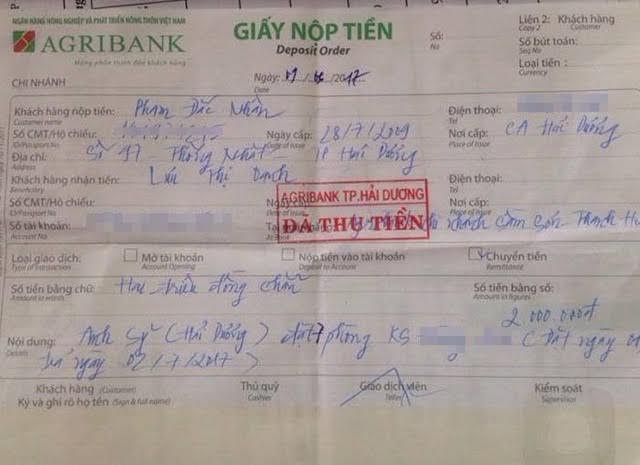 NGÂN HÀNG NÔNG NGHIỆP VÀ PHÁT TRIỂN NÔNG THÔN VIỆT NAM
AGRIBANK
Mang phồn thịnh đến khách hàng
CHI NHÁNH
GIẤY NỘP TIỀN
Deposit Order
Ngày: /2017
Date
Số:
No
Liên 2: Khách hàng
Copy 2 Customer
Số bút toán:
Seq No
Loại tiền:
Currency
Khách hàng nộp tiền: Phạm Đắc Nhân
Customer name
Điện thoại:
Tel
Số CMT/Hộ chiếu:
ID/Passport No
Ngày cấp: 28/7/2009
Date of issue
Nơi cấp: CA Hải Dương
Place of issue
Địa chỉ: Số 47 - Thống Nhất - TP Hải Dương
Address
Khách hàng nhận tiền: Thị
Beneficiary
Điện thoại:
Tel
AGRIBANK TP.HẢI DƯƠNG
ĐÃ THU TIỀN
Số CMT/Hộ chiếu:
ID/Passport No
Số tài khoản:
Account No
Sầm Sơn - Thanh
Loại giao dịch:
Type of transaction
Mở tài khoản
Account Opening
Nộp tiền vào tài khoản
Deposit to Account
Chuyển tiền
Remittance
Số tiền bằng chữ: Hai triệu đồng chẵn
Amount in words
Số tiền bằng số:
Amount in figures
2.000.000đ
Nội dung: Anh Sỹ (Hải Dương) đặt 7 phòng KS Đặt ngày
Details
trả ngày 02/7/2017)
Khách hàng (Customer)
Ký và ghi rõ họ tên (Sign & full name)
Thủ quỹ
Cashier
Giao dịch viên
Teller
Kiểm soát
Supervisor